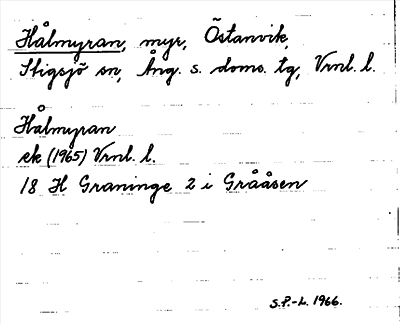 Hålmyran, myr, Östanvik,
Stigsjö sn, Ång. s. doms. tg, Vrnl. l.
Hålmyran
ek (1965) Vrnl. l.
18 H Graninge 2 i Grååsen
S.P.-L. 1966.